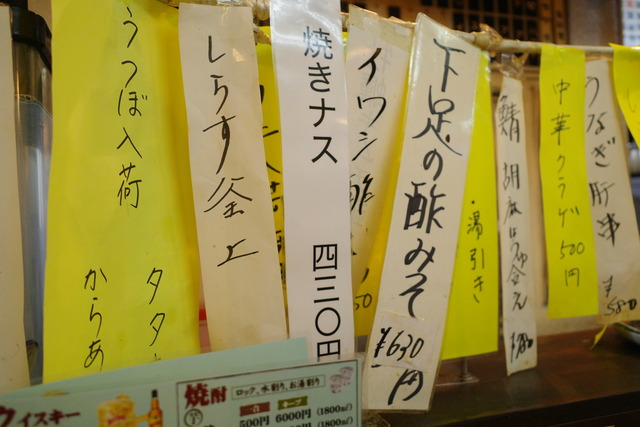 うつぼ入荷
タタ
からあ
しらす釜上
焼きナス 四三〇円
イワシ酢
50
下足の酢みそ
¥630円
湯引き
鯖胡麻
中華クラゲ 500円
うなぎ肝串
¥580
ウイスキー
焼酎
ロック、水割り、お湯割り
一合 キープ
500円 6000円 (1800㎖)